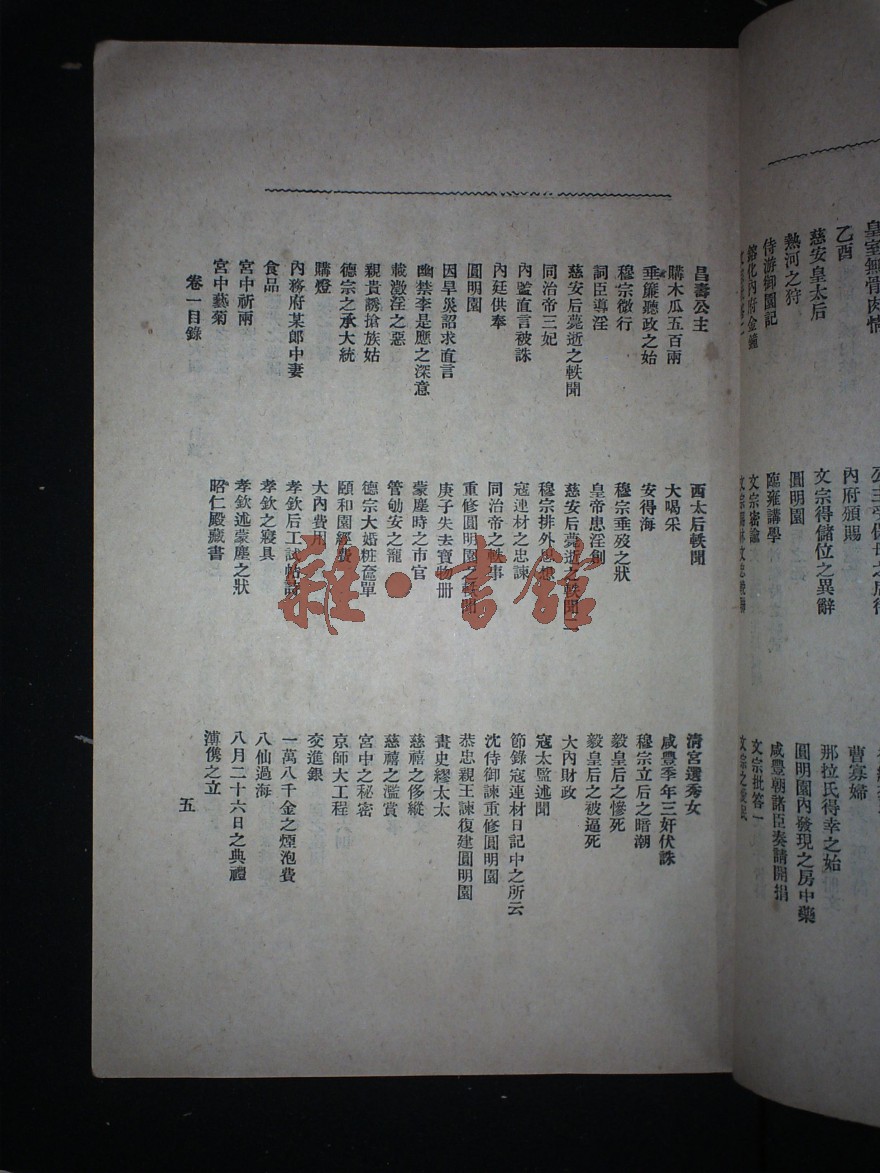 皇室無骨肉情
乙酉
內府頒賜
曹寡婦
慈安皇太后
文宗得儲位之異辭
那拉氏得幸之始
熱河之狩
圓明園
圓明園內發現之房中藥
侍游御園記
臨雍講學
咸豐朝諸臣奏請開捐
鎔化內府金鐘
文宗密諭
文宗批答一
昌壽公主
西太后軼聞
清宮選秀女
購木瓜五百兩
大喝采
咸豐季年三奸伏誅
垂簾聽政之始
安得海
穆宗立后之暗潮
穆宗微行
穆宗垂歿之狀
毅皇后之慘死
詞臣導淫
皇帝患淫創
毅皇后之被逼死
慈安后薨逝之軼聞
慈安后薨逝之軼聞二
大內財政
同治帝三妃
穆宗排外思想
寇太監述聞
內監直言被誅
寇連材之忠諫
節錄寇連材日記中之所云
內廷供奉
同治帝之軼事
沈侍御諫重修圓明園
圓明園
重修圓明園之軼聞
恭忠親王諫復建圓明園
因旱災詔求直言
庚子失去寶物册
畫史繆太太
幽禁李是應之深意
蒙塵時之市官
慈禧之侈縱
載澂淫之惡
管劬安之寵
慈禧之濫賞
親貴誘搶族姑
德宗大婚粧奩單
宮中之秘密
德宗之承大統
頤和園經費
京師大工程
購燈
大內費用
交進銀
內務府某郎中妻
孝欽后工試帖詩
一萬八千金之煙泡費
食品
孝欽之寢具
八仙過海
宮中祈雨
孝欽述蒙塵之狀
八月二十六日之典禮
宮中藝菊
昭仁殿藏書
溥儁之立
卷一目錄
五
雜·書館